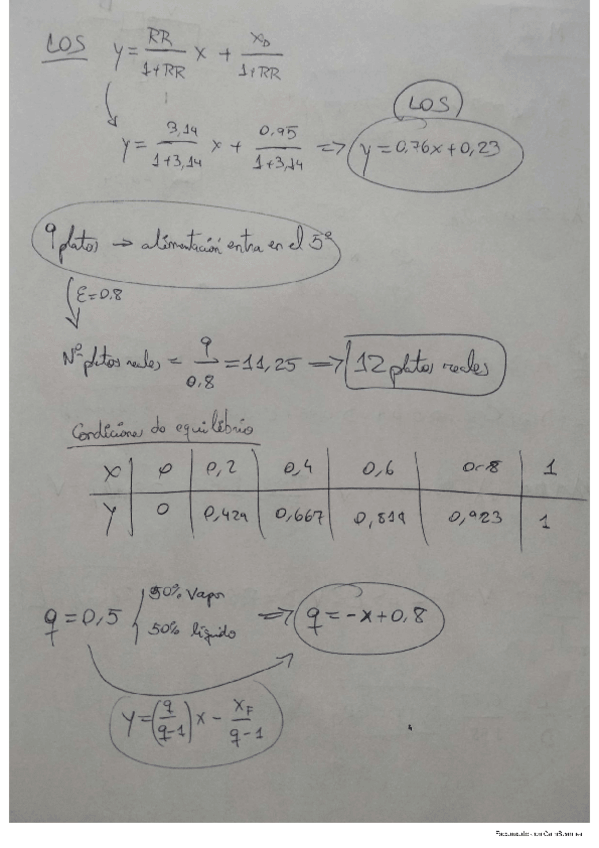 LOS y = RR/(1+RR) x + x_D/(1+RR)
LOS
y = 3,14/(1+3,14) x + 0,95/(1+3,14) => y = 0.76x + 0,23
9 platos → alimentación entra en el 5º
ε = 0.8
Nº platos reales = 9/0.8 = 11,25 => 12 platos reales
Condiciones de equilibrio
X 0 0,2 0,4 0,6 0.8 1
Y 0 0,429 0,667 0,818 0,923 1
q = 0,5 50% Vapor
50% líquido => q = -x + 0,8
y = (q/(q-1)) x - x_F/(q-1)